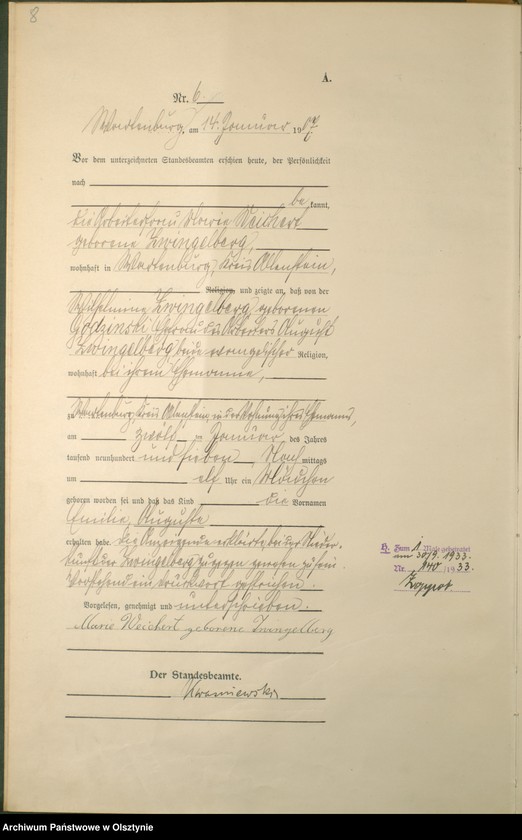 8
A.
Nr. 6
Wartenburg, am 14. Januar 1907
Vor dem unterzeichneten Standesbeamten erschien heute, der Persönlichkeit
nach
be kannt,
die Arbeiterfrau Marie Weichert
geborene Zwingelberg,
wohnhaft in Wartenburg, Kreis Allenstein,
Religion, und zeigte an, daß von der
Wilhelmine Zwingelberg geborenen
Godzinski Ehefrau des Arbeiters August
Zwingelberg beide evangelischer Religion,
wohnhaft bei ihrem Ehemanne,
zu Wartenburg, Kreis Allenstein, in der Wohnung ihres Ehemannes,
am zwölften Januar des Jahres
tausend neunhundert und sieben Nach mittags
um elf Uhr ein Mädchen
geboren worden sei und daß das Kind die Vornamen
Emilie Auguste
erhalten habe. Die Anzeigende erklärte bei der Nieder-
kunft der Zwingelberg zugegen gewesen zu sein.
Vorstehend ein Druckwort gestrichen.
Vorgelesen, genehmigt und unterschrieben.
Marie Weichert geborene Zwingelberg
Der Standesbeamte.
H. Zum 1. Male geheiratet
am 30/9. 1933.
Nr. 140 / 1933.
Zoppot
Archiwum Państwowe w Olsztynie